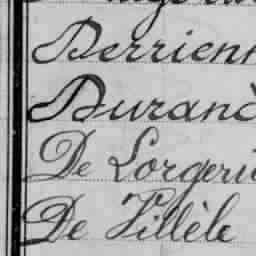 Berrien
Durand
De Lorgeri
De Villèle